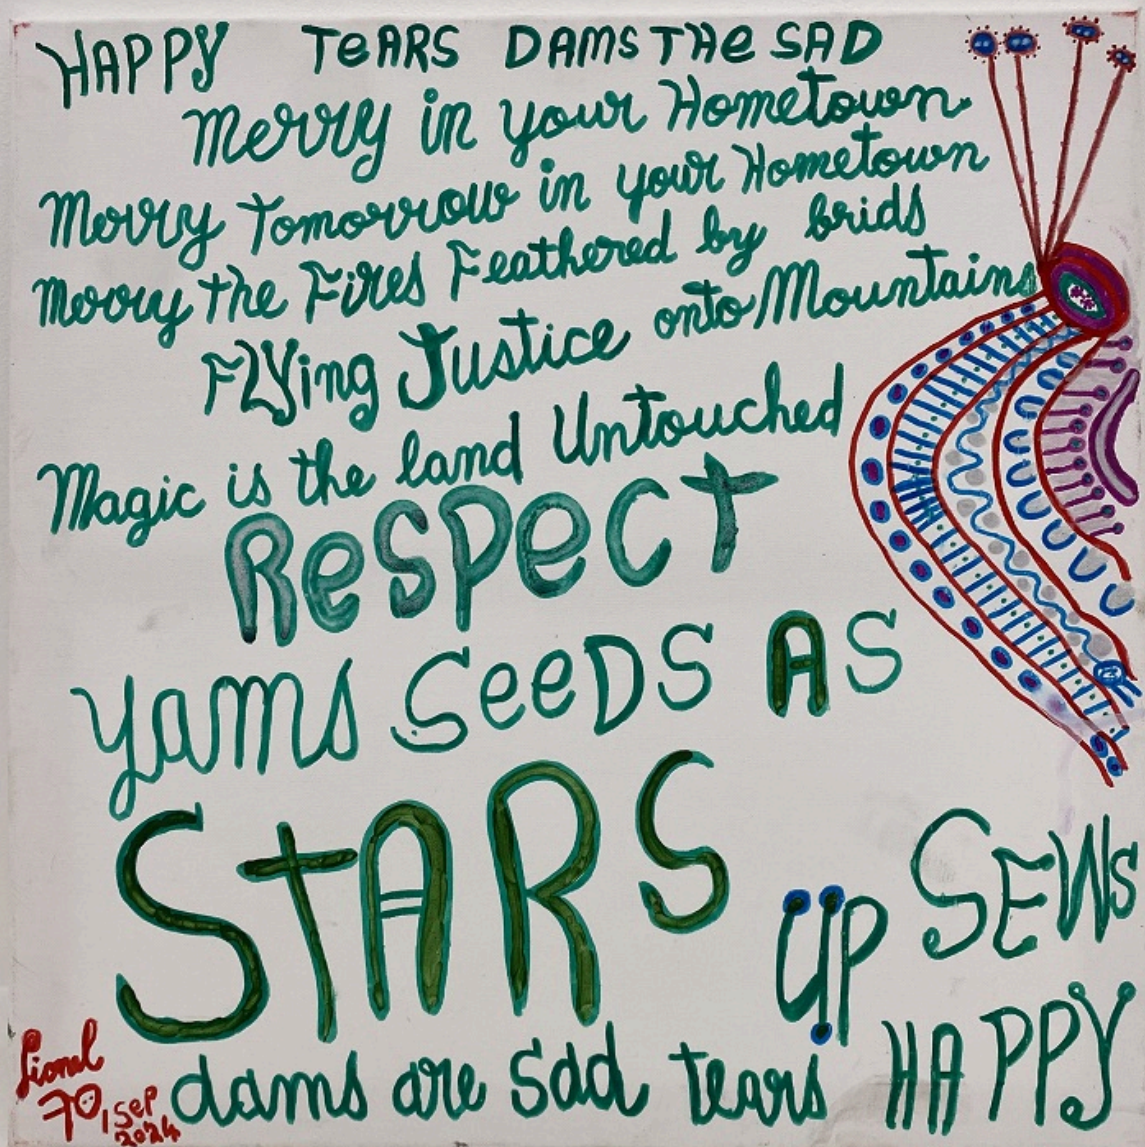 HAPPY TeARS DAMS THe SAD
Merry in your Hometown.
Merry Tomorrow in your Hometown
Merry the Fires Feathered by brids
FLYing Justice onto Mountains
Magic is the land Untouched
ResPecT
yams SeeDS AS
STARS
UP SEWs
dams are sad tears HAPPY
Lionel
70, Sep
2024